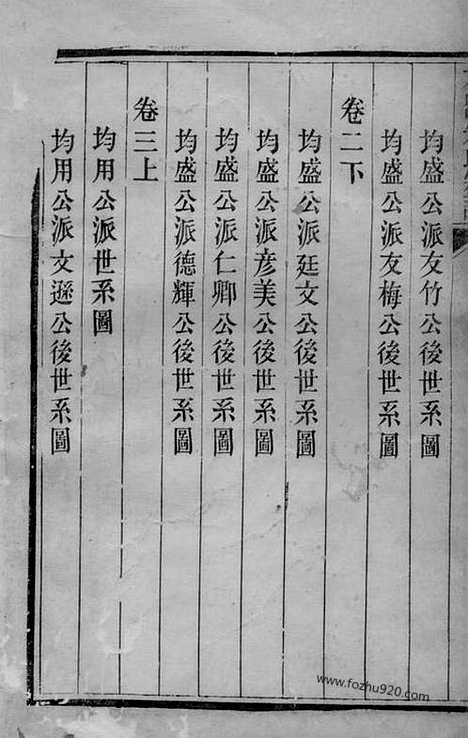 均盛公派友竹公後世系圖
均盛公派友梅公後世系圖
卷二下
均盛公派廷文公後世系圖
均盛公派彦美公後世系圖
均盛公派仁卿公後世系圖
均盛公派德輝公後世系圖
卷三上
均用公派世系圖
均用公派文遜公後世系圖
www.fozhu920.com